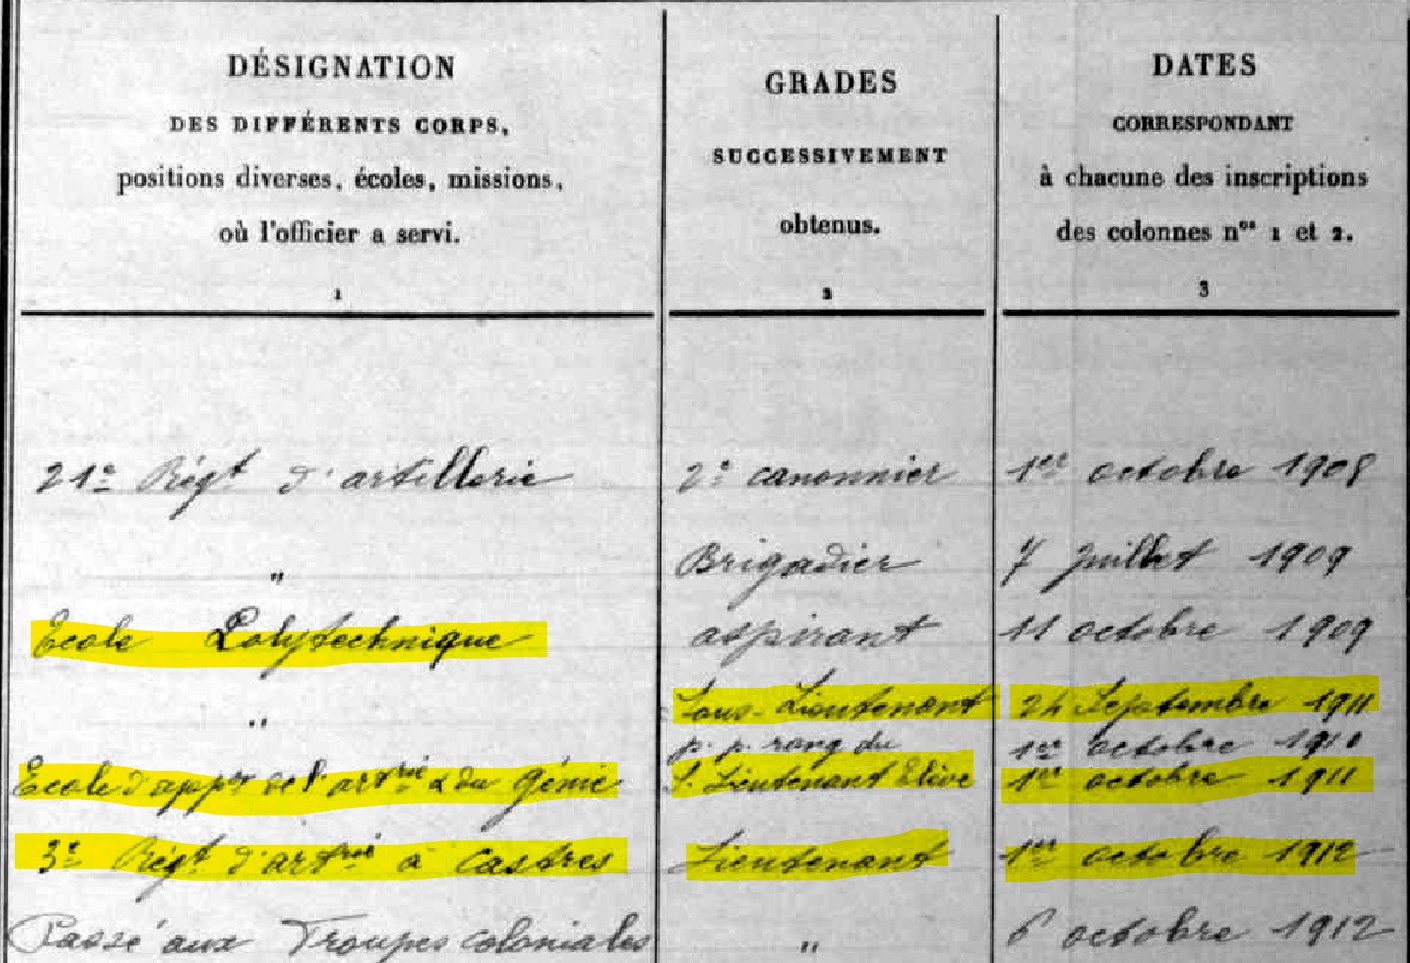 DÉSIGNATION
DES DIFFÉRENTS CORPS,
positions diverses, écoles, missions,
où l'officier a servi.
1
GRADES
SUCCESSIVEMENT
obtenus.
2
DATES
CORRESPONDANT
à chacune des inscriptions
des colonnes nos 1 et 2.
3
21e Régt d'artillerie 2e canonnier 1er octobre 1908
" Brigadier 7 juillet 1909
Ecole Polytechnique aspirant 11 octobre 1909
" Sous-Lieutenant 24 Septembre 1911
p. p. rang du 1er octobre 1910
Ecole d'appon de l'artrie & du Génie S. Lieutenant Elève 1er octobre 1911
3e Régt d'artrie à Castres Lieutenant 1er octobre 1912
Passé aux Troupes coloniales " 6 octobre 1912